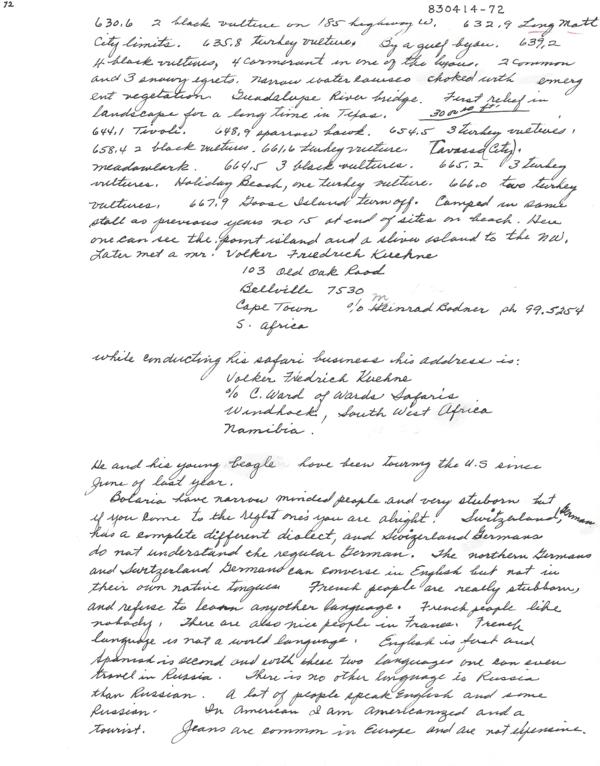 72
830414-72
630.6 2 black vulture on 185 highway W. 632.9 Long Mott
City limits. 635.8 turkey vulture. By a guef byou. 639.2
4 black vultures, 4 cormorant in one of the byous. 2 common
and 3 snowy egrets. narrow water courses choked with emerg
ent vegetation Guadalupe River bridge. First relief in
landscape for a long time in Texas.
644.1 Tivoli. 648.9 sparrow hawk. 654.5 3 turkey vultures.
658.4 2 black vultures. 661.6 turkey vulture. (City).
meadowlark. 664.5 3 black vultures. 665.2 3 turkey
vultures. Holiday Beach, one turkey vulture. 666.0 two turkey
vultures. 667.9 Goose Island turn off. Camped in same
stall as previous years no 15 at end of sites on beach. Here
one can see the point island and a sliver island to the NW.
Later met a mr. Volker Friedrich Kuehne
103 Old Oak Road
Bellville 7530
Cape Town c/o Meinrad Bodner ph 99.5254
S. Africa
while conducting his safari business his address is:
Volker Fredrich Kuehne
c/o C. Ward of Wards Safaris
Windhoek, South West Africa
Namibia.
He and his young beagle have been touring the U.S since
June of last year.
Bolaria have narrow minded people and very stuborn but
if you come to the right ones you are alright. Switzerland, German
has a complete different dialect, and Swizerland Germans
do not understand the regular German. The northern Germans
and Switzerland Germans can converse in English but not in
their own native tongues. French people are really stubborn,
and refuse to learn anyother language. French people like
nobody. There are also nice people in France. French
language is not a world language. English is first and
Spanish is second and with these two languages one can even
travel in Russia. There is no other language is Russia
than Russian. A lot of people speak English and some
Russian. In American I am americanized and a
tourist. Jeans are common in Europe and are not expensive.